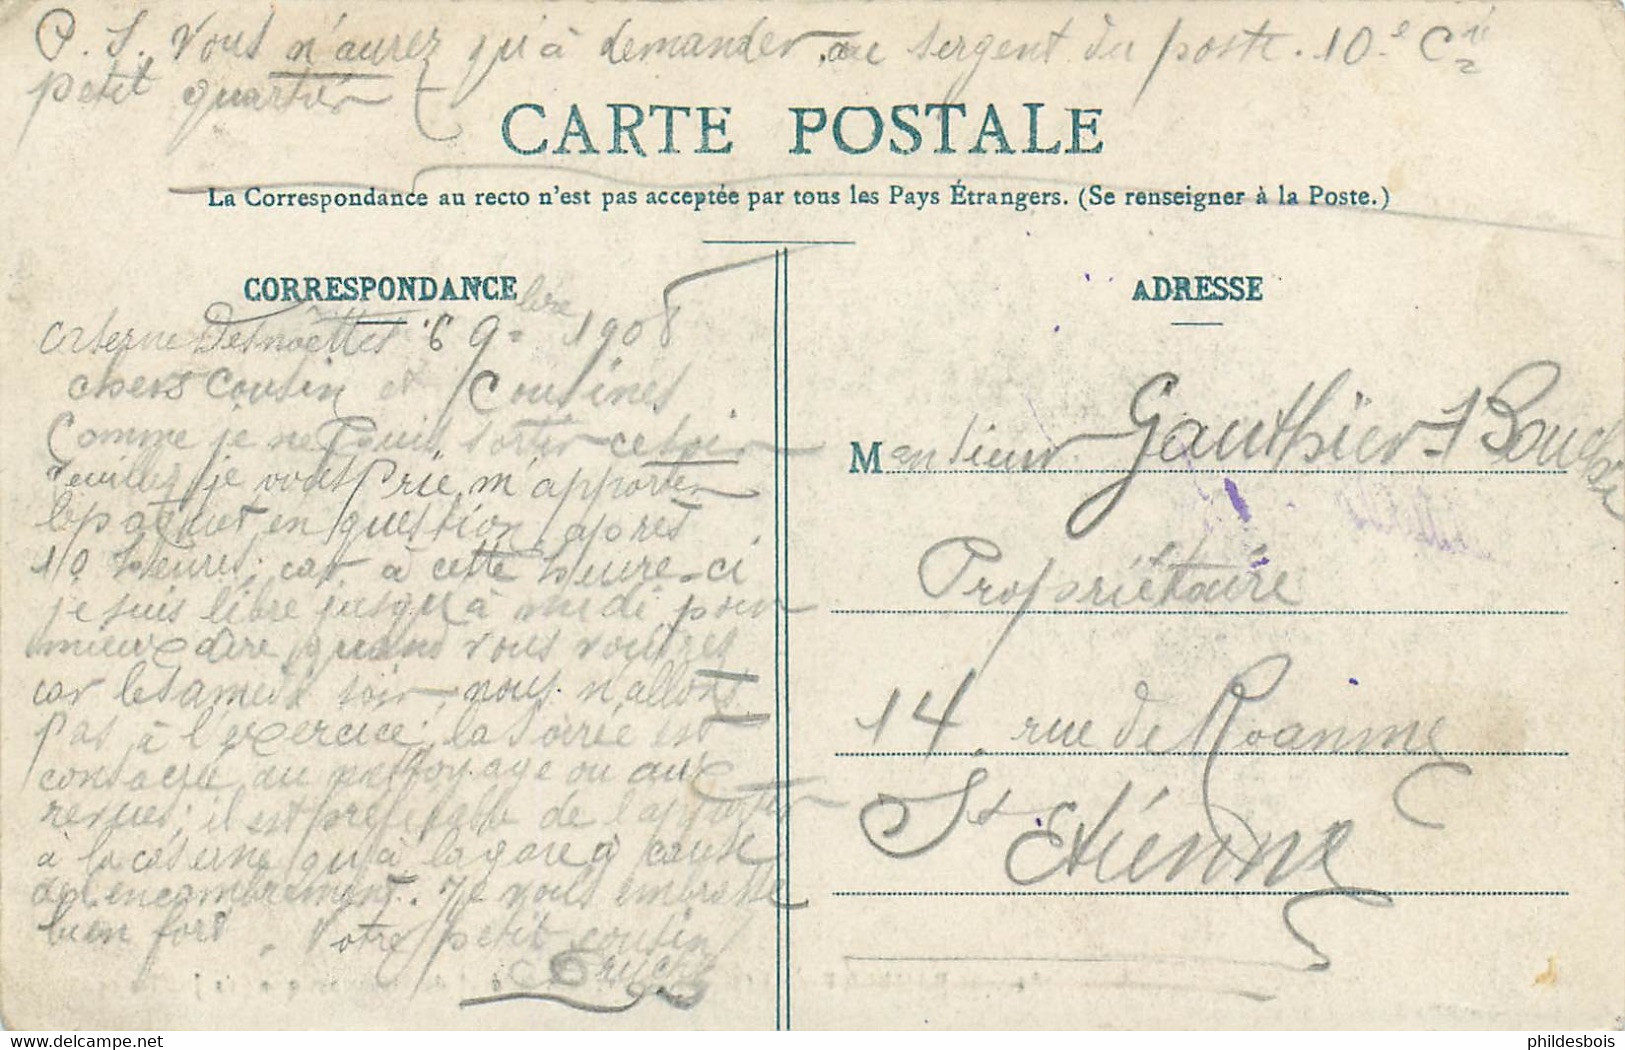 P. S. Vous n'aurez qu'à demander au sergent du poste. 10.e Cnie
petit quartier
CARTE POSTALE
La Correspondance au recto n'est pas acceptée par tous les Pays Étrangers. (Se renseigner à la Poste.)
CORRESPONDANCE
caserne Desnoëttes 6 9bre 1908
chers Cousin et Cousines
Comme je ne puis sortir ce soir
veuillez je vous prie m'apporter
le paquet en question, après
10 heures; car à cette heure-ci
je suis libre jusqu'à midi pour
mieux dire quand vous voudrez
car le samedi soir nous n'allons
pas à l'exercice; la soirée est
consacrée au nettoyage ou aux
revues; il est préférable de l'apporter
à la caserne qu'à la gare à cause
de l'encombrement. Je vous embrasse
bien fort. Votre petit cousin
ADRESSE
Monsieur Gauthier-Boucher
Propriétaire
14, rue de Roanne
St Etienne
phildesbois